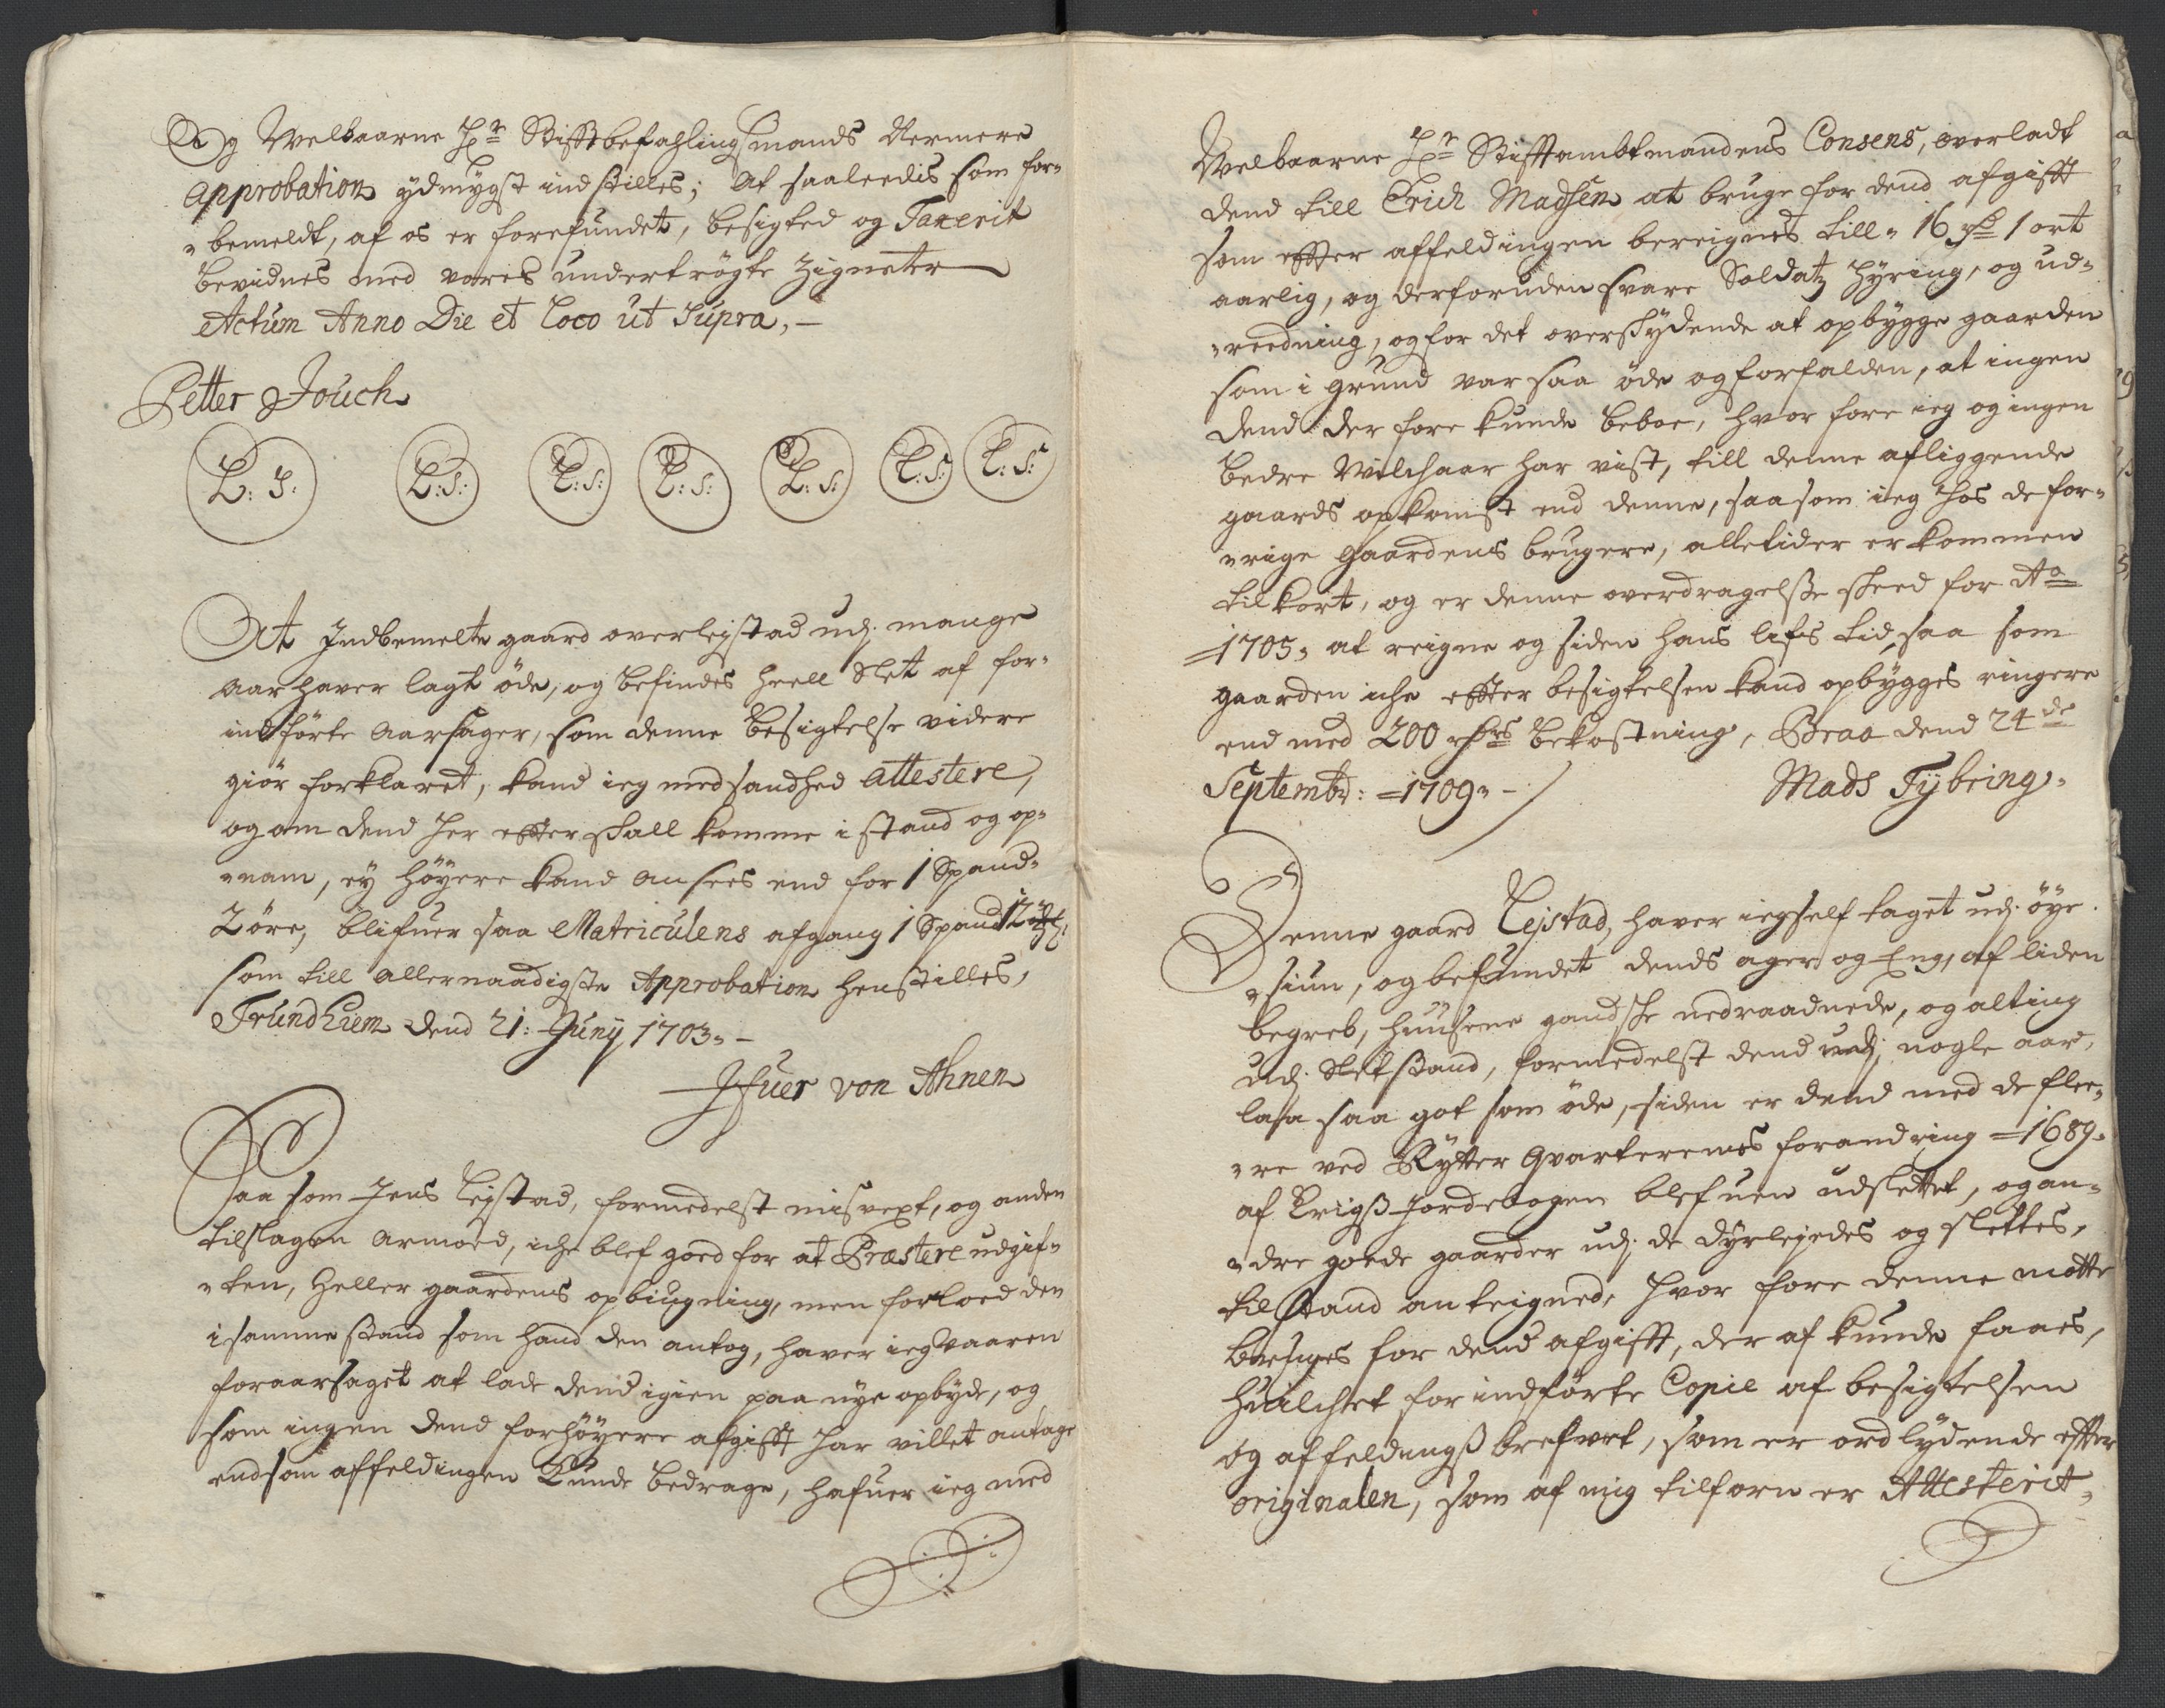 Og Welbaarne Hr Stifftbefahlingsmands Nermere
approbation ydmygst indstilles; At saaleedis som for-
"bemeldt, af os er forefundet, besigted og Taxerit
bevidnes med vores undertrögte Zigneter
Actum Anno Die et Loco ut Supra, –
Petter Jouch
L: S: L: S: L: S: L: S: L: S: L: S: L: S:
At Indbemelte gaard overlejstad udj mange
Aar haver lagt öde, og befindes heell Slet af for-
indförte Aarsager, som denne besigtelse videre
giör forklaret, kand ieg med sandhed Attestere,
og om dend her effter skall komme i stand og op-
"nam, ey höyere kand ansees end for 1 Spand
2 öre, blifuer saa Matriculens afgang 1 Spand 12
som till allernaadigste Approbation henstilles,
Trundhiem dend 21: Junij 1703" –
Jfuer von Ahnen
Saa som Jens Lejstad, formedelst misvext, og anden
tilslagen Armoed, iche blef goed for at Præstere udgif-
"ten, Heller gaardens opbiugning, men forloed den
i samme stand som hand den antog, haver ieg vaaren
foraarsaget at lade dend igien paa nye opbyde, og
som ingen dend forhöyere afgifft har villet antage
end som affeldingen kunde bedrage, hafuer ieg med
Welbaarne Hr Stifftambtmandens Consens, overladt
dend till Erich Madsen at bruge for dend afgifft
som effter affeldingen bereignes till" 16 rd 1 ort
aarlig, og derforuden svare Soldatz Hyring, og ud-
"reedning, og for det overskydende at opbygge gaarden
som i grund var saa öde og forfalden, at ingen
dend derfore kunde beboe, hvor fore ieg og ingen
bedre Wilchaar har vist, till denne afliggende
gaards opkomst end denne, saasom ieg hos de for-
"rige gaardens brugere, alletider er kommen
tilkort, og er denne overdragelsse skeed for Ao
=1705" at reigne og siden hans lifs tid, saa som
gaarden iche effter besigtelsen kand opbygges ringere
end med 200 rdrs bekostning, Braa dend 24de
Septembr: =1709" –
Mads Tybring"
Denne gaard Lejstad, haver ieg self taget udj öye-
"siun, og befundet dends ager og Eng, af liden
begreb, huusene gandske nedraadnede, og alting
udj Slet stand, formedelst dend udj nogle aar,
laa saa got som öde, siden er dend med de flee-
"re ved Rytter Qvarterernes forandring =1689"
af Krigss Jordebogen blefuen udslettet, og an-
"dre goede gaarder udj de dyrlejedes og slettes,
tilstand anteignede hvor fore denne motte
bortsiges for dend afgifft, der af kunde faaes,
huilchet for indförte Copie af besigtelsen
og affeldingss brefvet, som er ordlydende effter
originalen, som af mig tilforn er Attesterit"